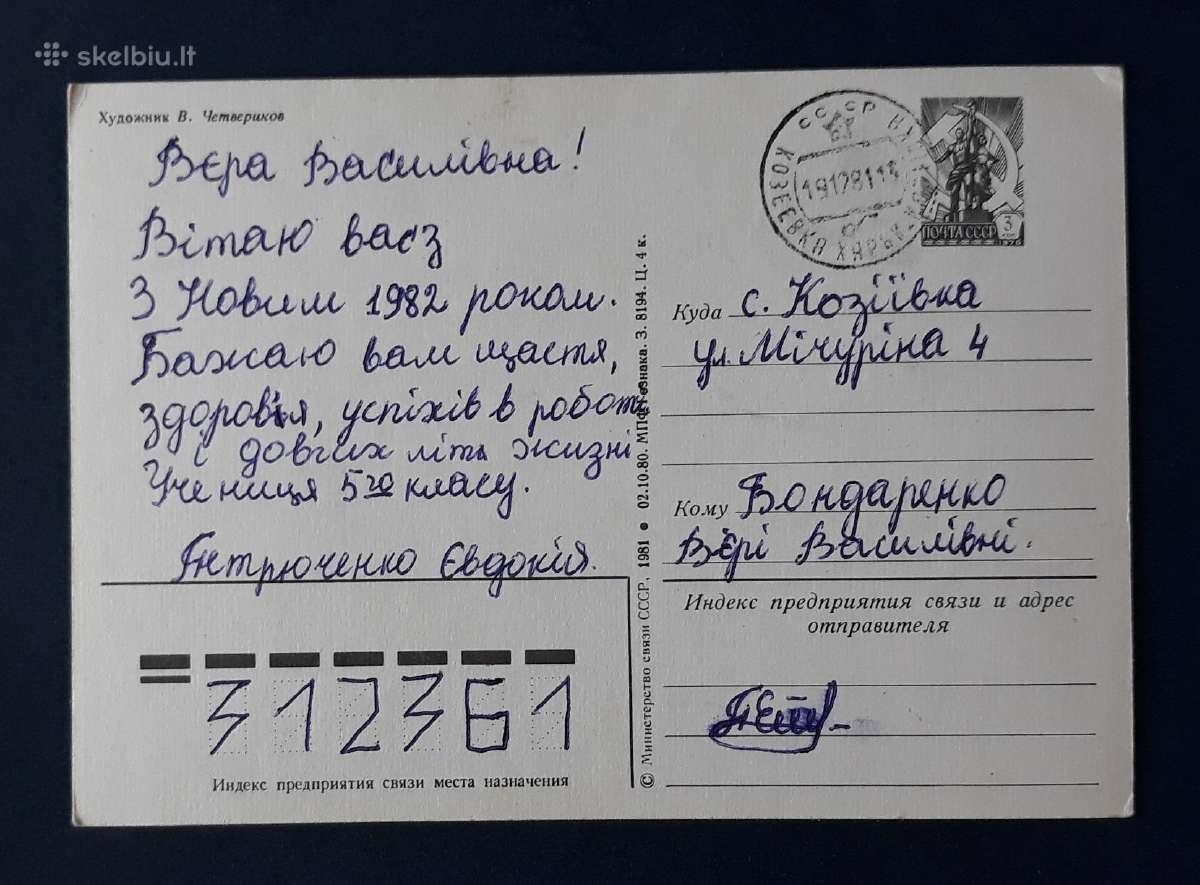 skelbiu.lt
Художник В. Четвериков
Вєра Василівна!
Вітаю васз
З Новим 1982 роком.
Бажаю вам щастя,
здоров'я, успіхів в роботі
і довгих літь жизні
Учениця 5го класу.
Євдокія.
312361
Индекс предприятия связи места назначения
© Министерство связи СССР, 1981 • 02.10.80. МПФ Гознака. З. 8194. Ц. 4 к.
СССР
КОЗЕЕВКА ХАРЬК.
19128114
ПОЧТА СССР 3
1976
Куда с. Козіївка
ул. Мічуріна 4
Кому Бондаренко
Вєрі Василівні.
Индекс предприятия связи и адрес
отправителя